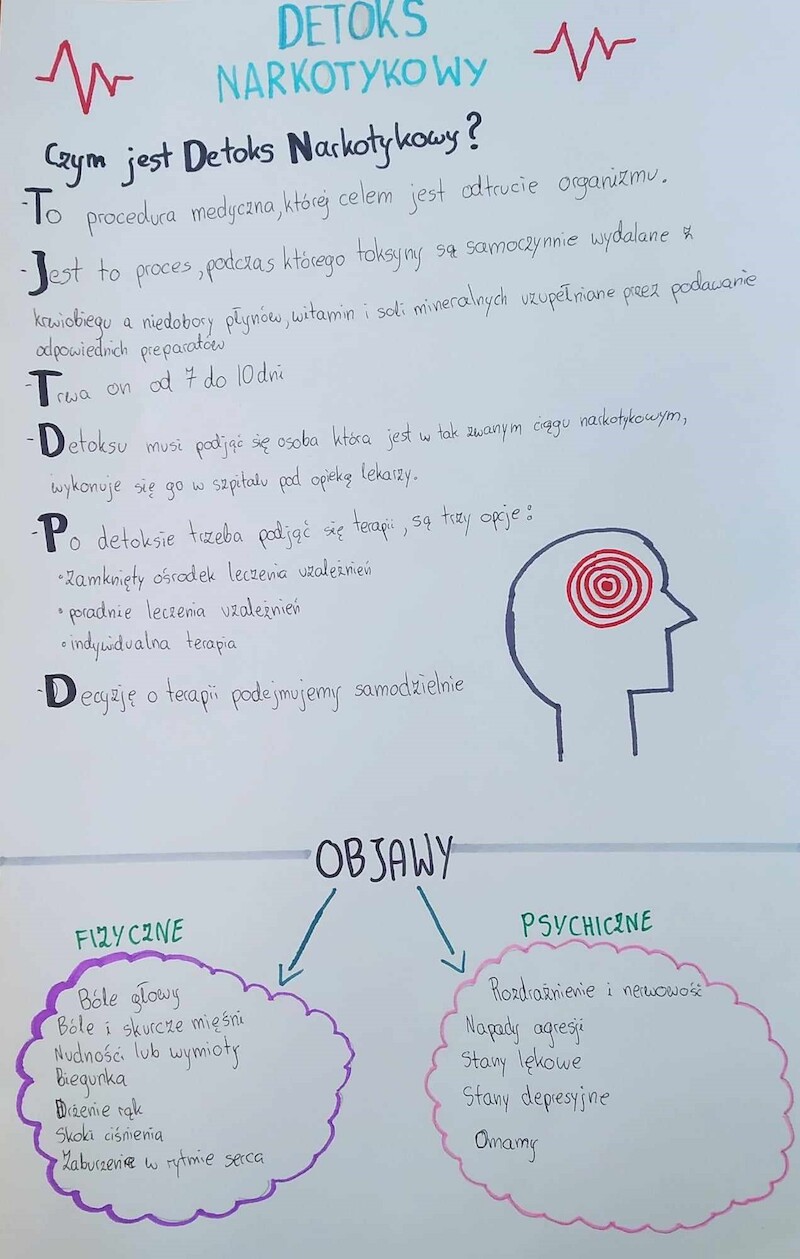 DETOKS
NARKOTYKOWY
Czym jest Detoks Narkotykowy?
-To procedura medyczna, której celem jest odtrucie organizmu.
-Jest to proces, podczas którego toksyny są samoczynnie wydalane z
krwiobiegu a niedobory płynów, witamin i soli mineralnych uzupełniane przez podawanie
odpowiednich preparatów
-Trwa on od 7 do 10 dni
-Detoksu musi podjąć się osoba która jest w tak zwanym ciągu narkotykowym,
wykonuje się go w szpitalu pod opieką lekarzy.
-Po detoksie trzeba podjąć się terapii, są trzy opcje:
•zamknięty ośrodek leczenia uzależnień
•poradnie leczenia uzależnień
•indywidualna terapia
-Decyzję o terapii podejmujemy samodzielnie
OBJAWY
FIZYCZNE
Bóle głowy
Bóle i skurcze mięśni
Nudności lub wymioty
Biegunka
Drżenie rąk
Skoki ciśnienia
Zaburzenie w rytmie serca
PSYCHICZNE
Rozdrażnienie i nerwowość
Napady agresji
Stany lękowe
Stany depresyjne
Omamy